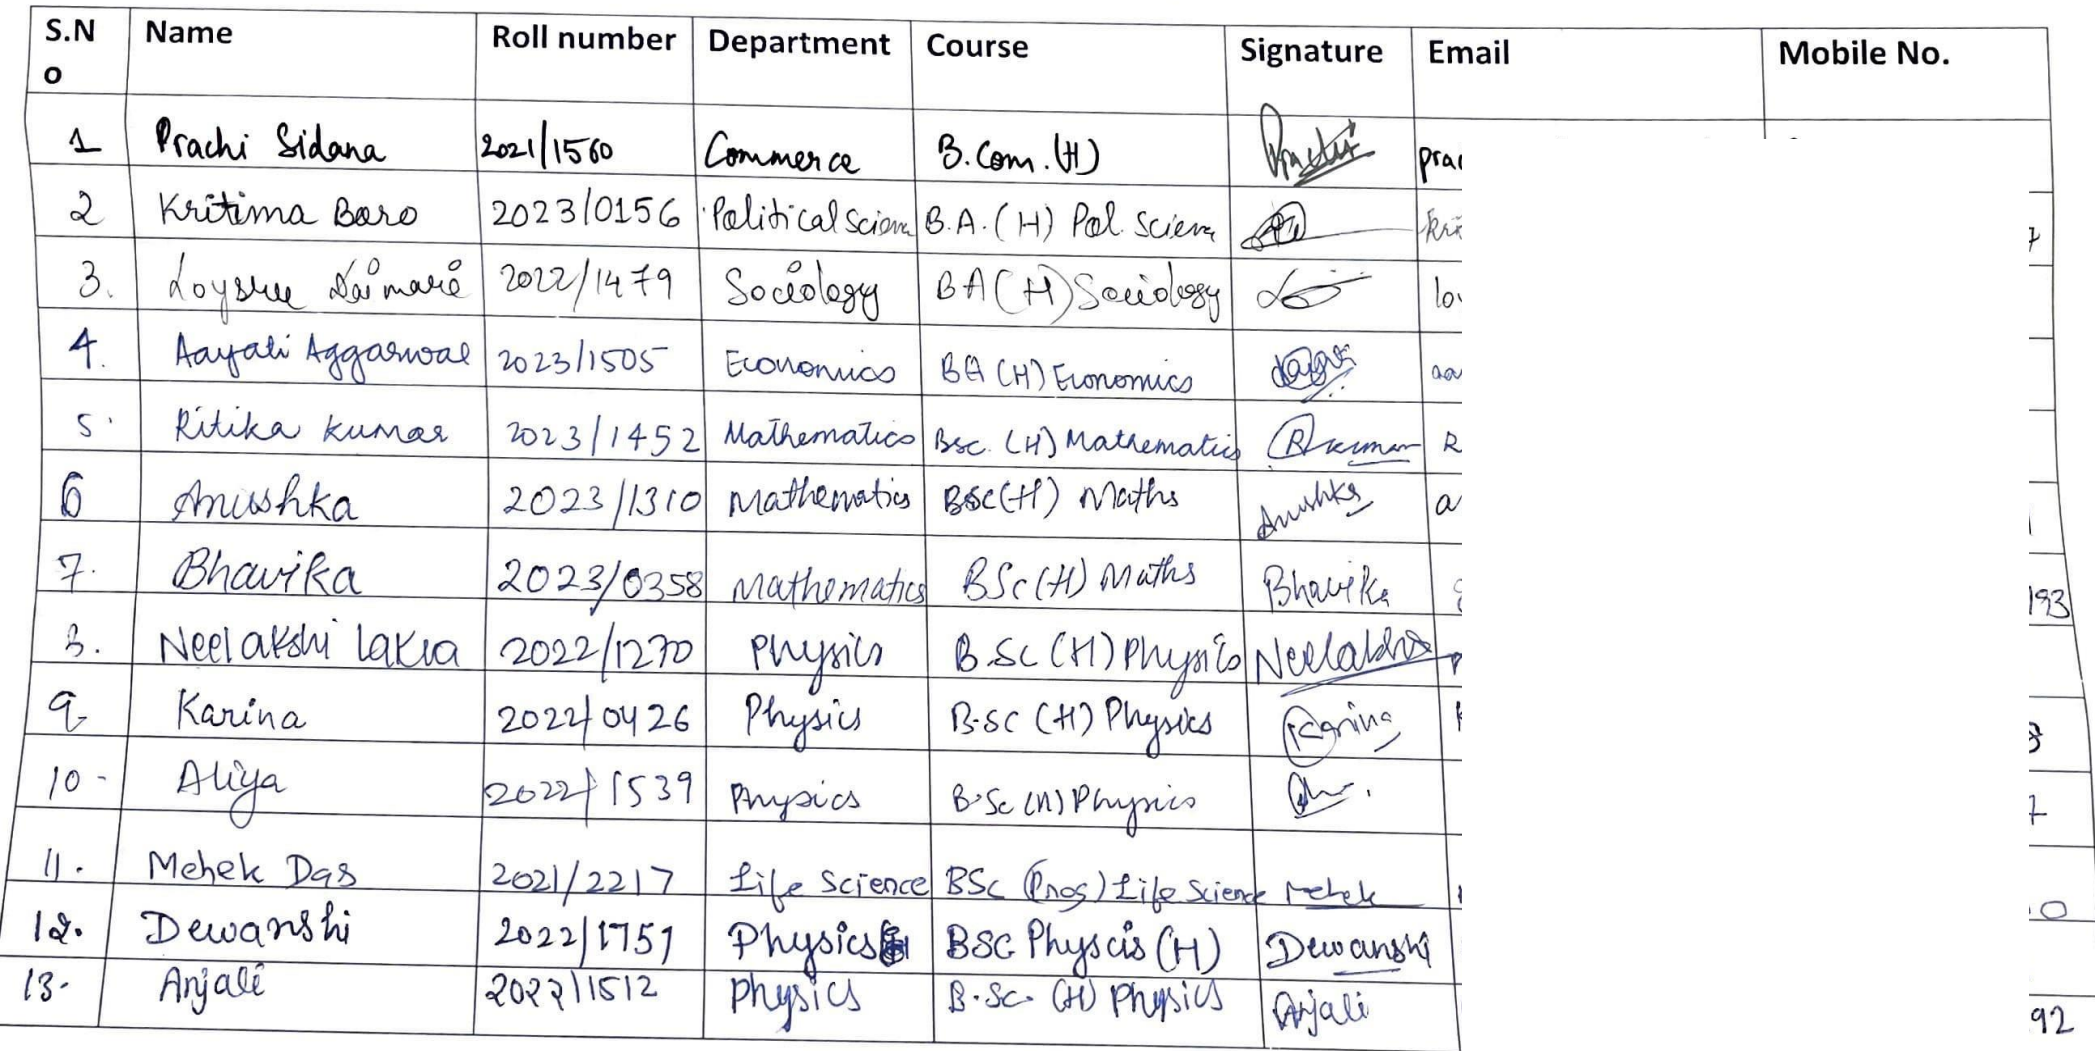 S.N
o Name Roll number Department Course Signature Email Mobile No.
1 Prachi Sidana 2021/1560 Commerce B.Com.(H) Prachi prac
2 Kritima Boro 2023/0156 Political Scien B.A.(H) Pol. Scien kri 7
3. Loyshree Daimari 2022/1479 Sociology BA(H) Sociology lo
4. Aayati Aggarwal 2023/1505 Economics BA (H) Economics aa
5. Ritika Kumar 2023/1452 Mathematics Bsc. (H) Mathematics RKumar R
6 Anushka 2023/1310 Mathematics BSc(H) Maths Anushka a
7. Bhavika 2023/0358 Mathematics BSc(H) Maths Bhavika 193
8. Neelakshi Lakra 2022/1270 Physics B.Sc (H) Physics Neelakshi
9 Karina 2022/0426 Physics B.SC (H) Physics Karina 8
10- Aliya 2022/1539 Physics B.Sc (H) Physics 7
11. Mehek Das 2021/2217 Life Science BSc (Prog) Life Science Mehek 0
12. Dewanshi 2022/1751 Physics BSC Physcis (H) Dewanshi
13- Anjali 2022/1512 Physics B.Sc. (H) Physics Anjali 92